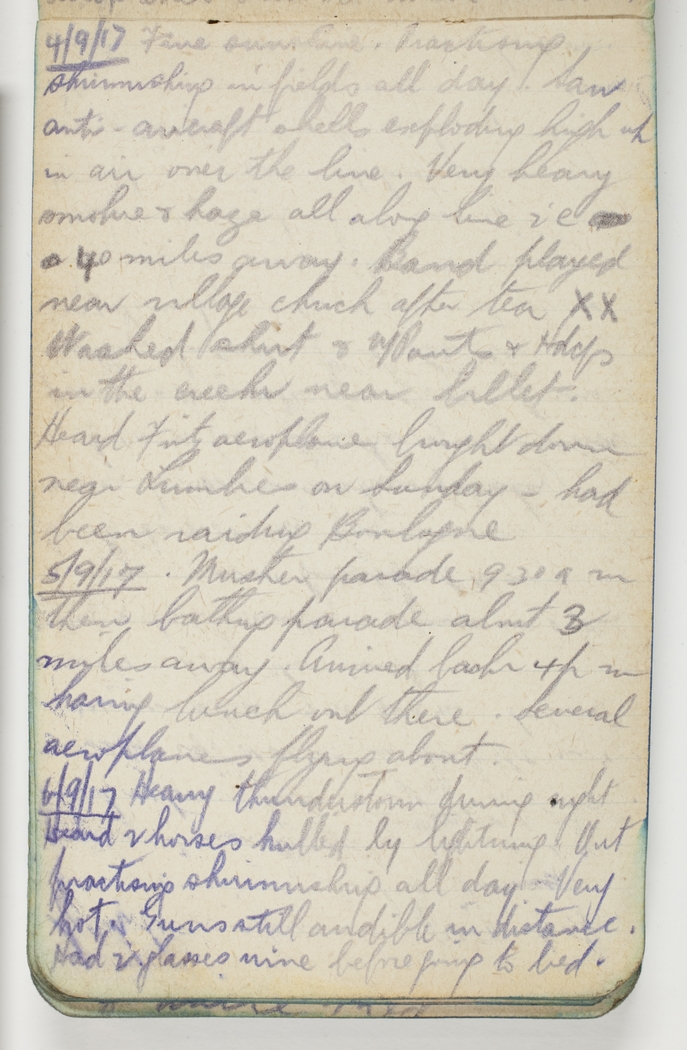 4/9/17 Fine sunshine. Practising
skirmishing in fields all day. Saw
anti-aircraft shells exploding high up
in air over the line. Very heavy
smoke & haze all along line i e
40 miles away. Band played
near village church after tea XX
Washed shirt & u/Pants & Hdcfs
in the creek near billet.
Heard Fritz aeroplane brought down
near Lumbres on Sunday - had
been raiding Boulogne
5/9/17. Muster parade 9 30 a m
then bathing parade about 3
miles away. Arrived back 4 p m
having lunch out there. Several
aeroplanes flying about.
6/9/17 Heavy thunderstorm during night
Heard 2 horses killed by lightning. Out
practising skirmishing all day. Very
hot. Guns still audible in distance.
Had 2 glasses wine before going to bed.